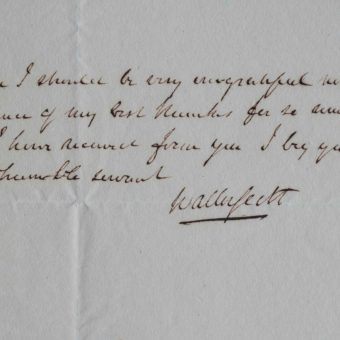 I should be very ungrateful
of my best thanks for so
I have received from you I beg
humble servant
Walter Scott